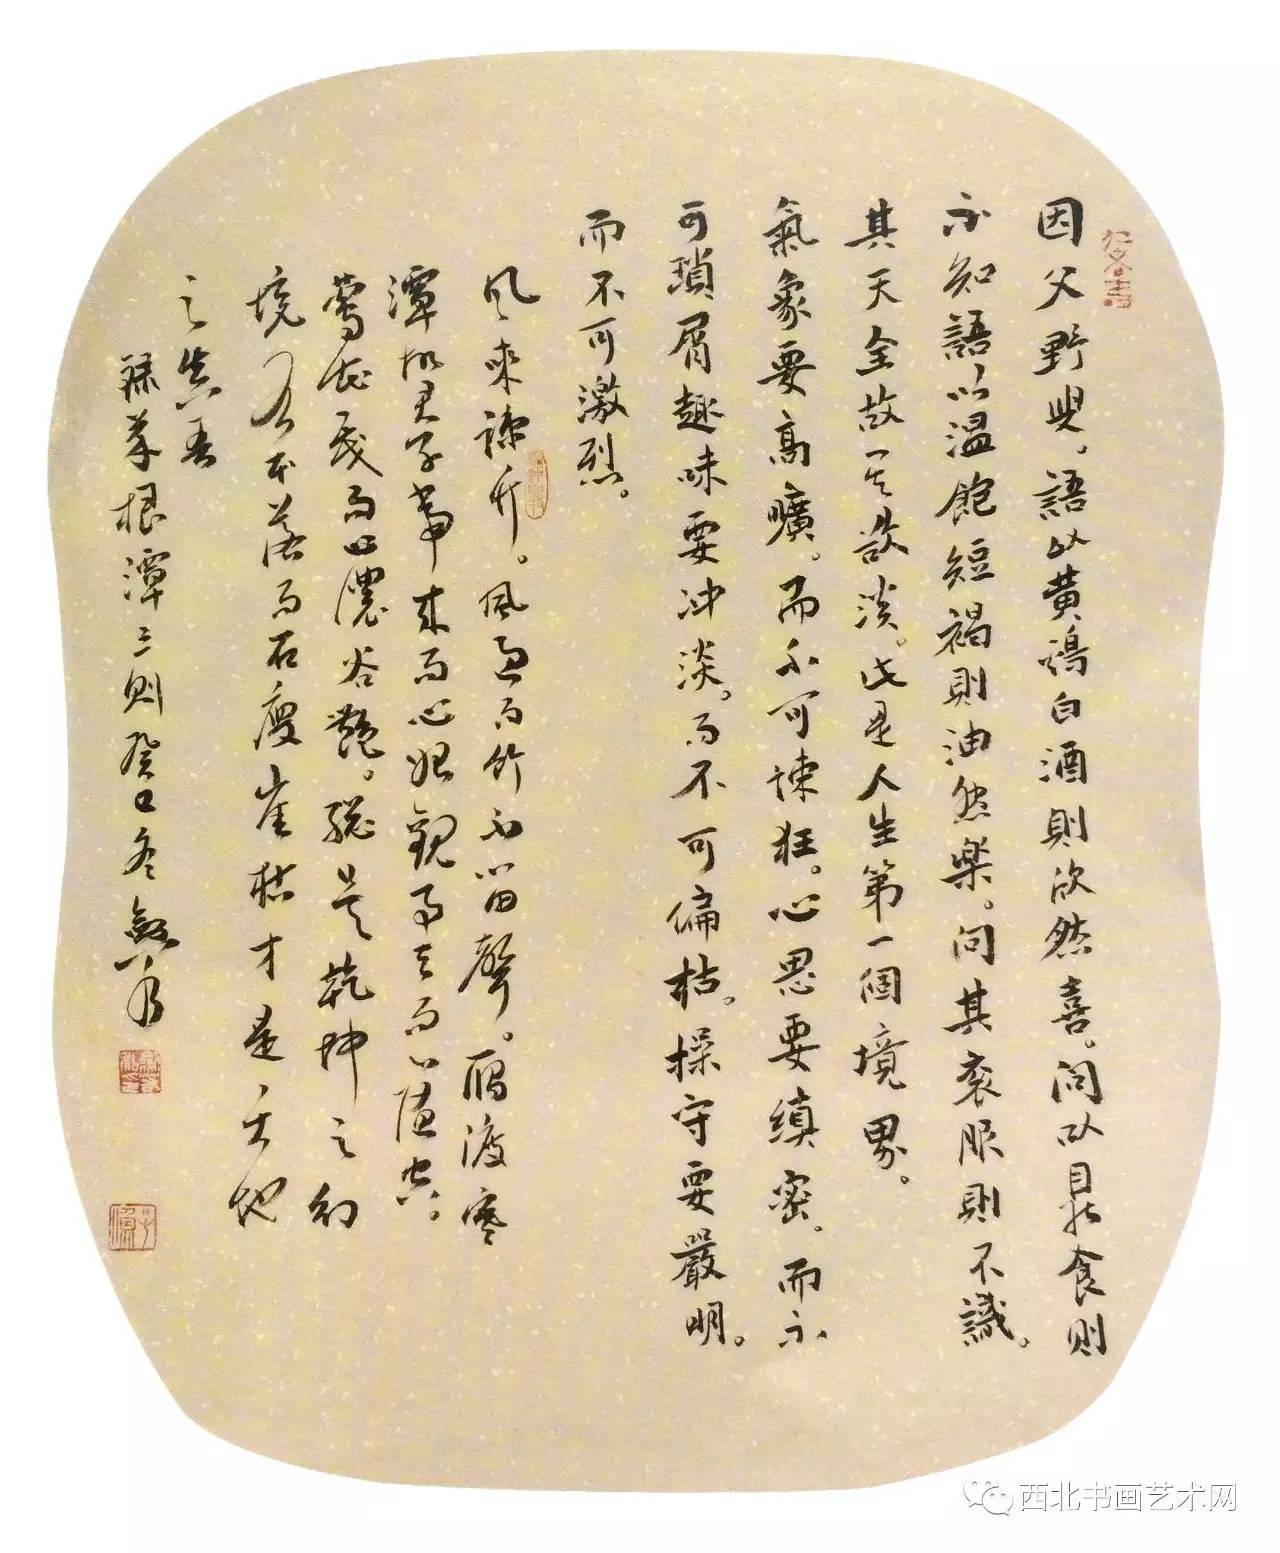 因父野叟。語以黄鷄白酒則欣然喜。问以鼎食则
不知語以温飽短褐則油然樂。问其衮服則不識。
其天全故其欲淡。此是人生第一個境界。
氣象要高曠。而不可疎狂。心思要缜密。而不
可瑣屑趣味要冲淡。而不可偏枯。操守要嚴明。
而不可激烈。
风来疎竹。風過而竹不留聲。雁渡寒
潭故君子事来而心始現事去而心随空。
莺花茂而山濃谷艷。总是乾坤之幻
境水木落而石瘦崖枯才是天地
之真吾
録菜根潭三则癸巳冬
西北书画艺术网